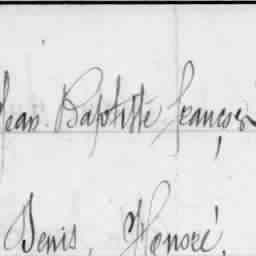 Jean Baptiste François,
Denis, Honoré,